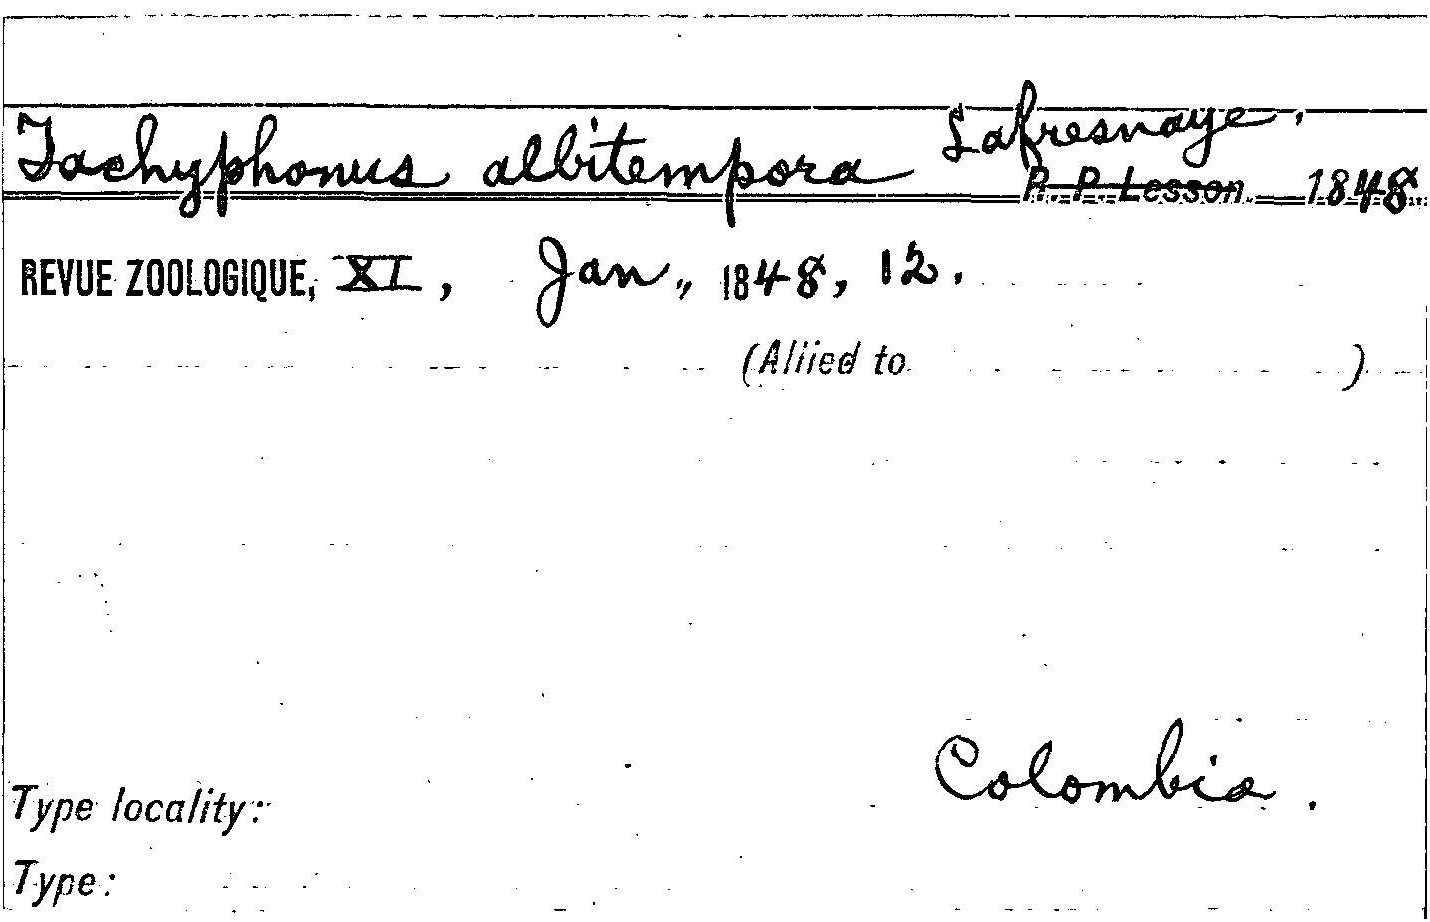 Tachyphonus albitempora Lafresnaye.
R. P. Lesson. 1848.
REVUE ZOOLOGIQUE, XI, Jan., 1848, 12.
(Allied to )
Colombia.
Type locality:
Type: